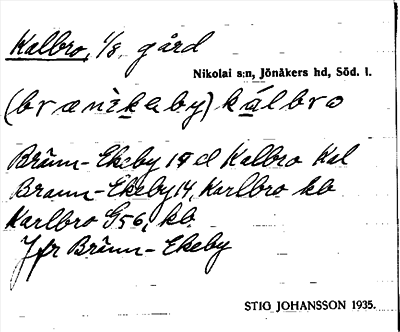 Kalbro, 1/8 gård
Nikolai s:n, Jönåkers hd, Söd. l.
(brænèkeby) kálbro
Bränn-Ekeby 19 d Kalbro Kal
Brann-Ekeby 14, Karlbro kb
Karlbro G56, kb
Jfr Bränn-Ekeby
STIG JOHANSSON 1935.